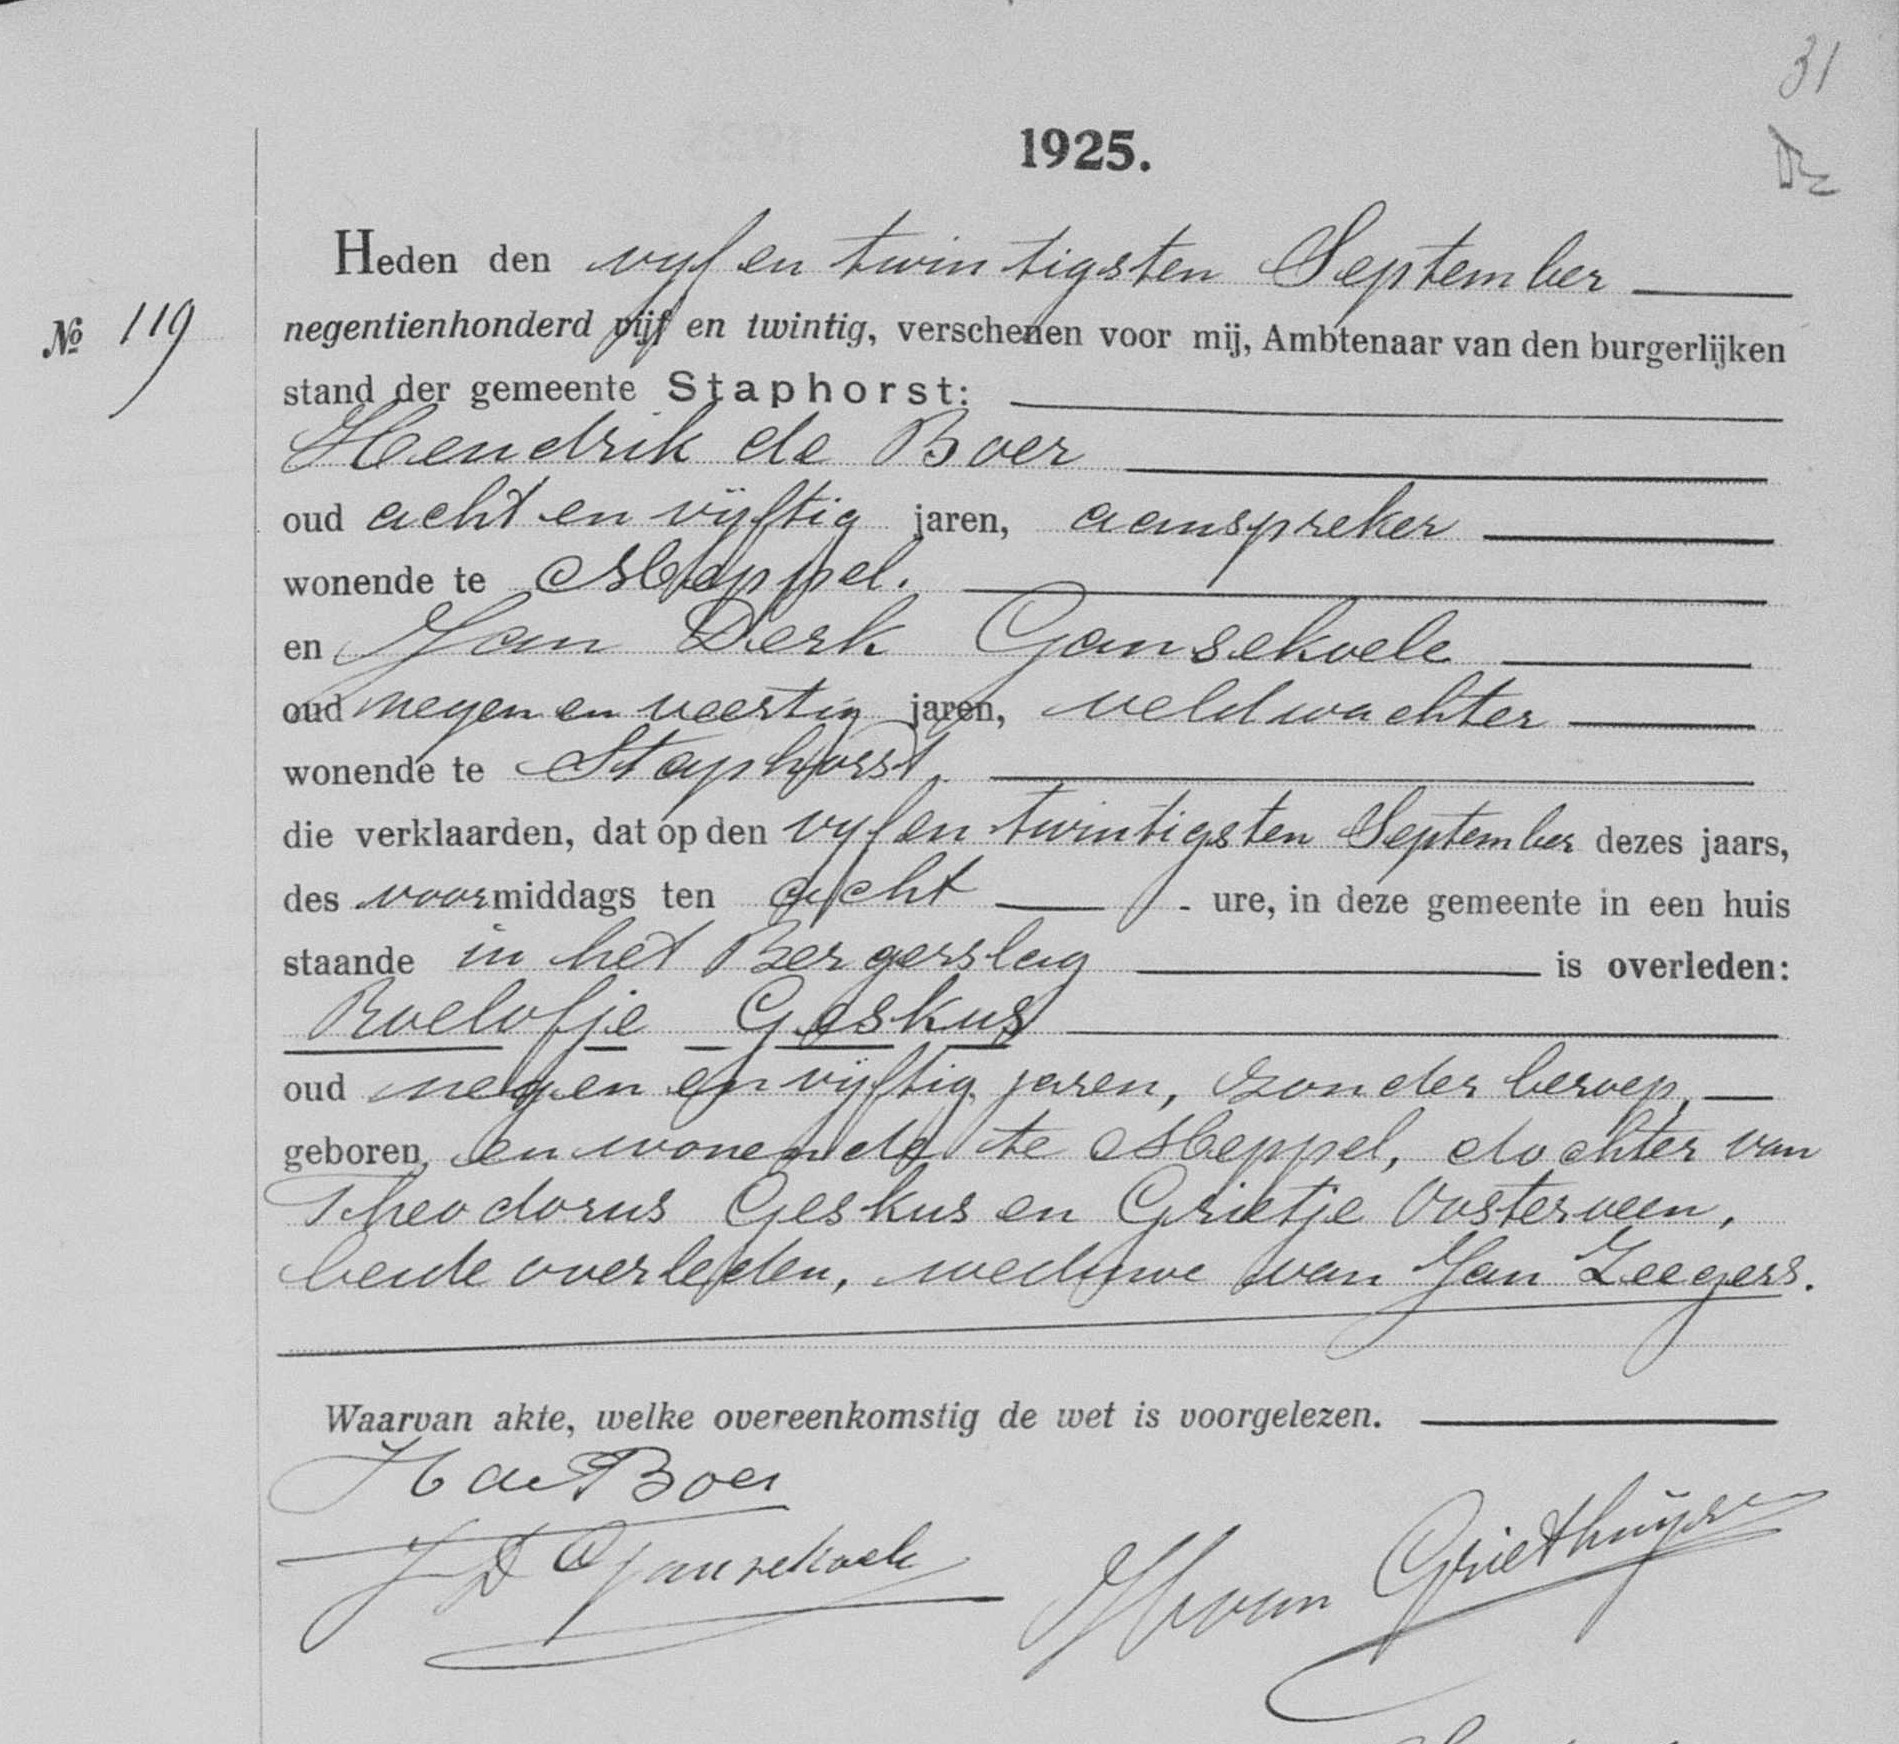 31
1925.
Heden den vyf en twintigsten September
№ 119
negentienhonderd vijf en twintig, verschenen voor mij, Ambtenaar van den burgerlijken
stand der gemeente Staphorst:
Hendrik de Boer
oud acht en vijftig jaren, aanspreker
wonende te Meppel.
en Jan Derk Gansekoele
oud negen en veertig jaren, veldwachter
wonende te Staphorst,
die verklaarden, dat op den vyf en twintigsten September dezes jaars,
des voormiddags ten acht ure, in deze gemeente in een huis
staande in het Bergerslag is overleden:
Roelofje Geskus
oud negen en vijftig jaren, zonder beroep,
geboren en wonende te Meppel, dochter van
Theodorus Geskus en Grietje Oosterveen,
beide overleden, weduwe van Jan Zeegers.
Waarvan akte, welke overeenkomstig de wet is voorgelezen.
H de Boer
J D Gansekoele
H van Griethuysen